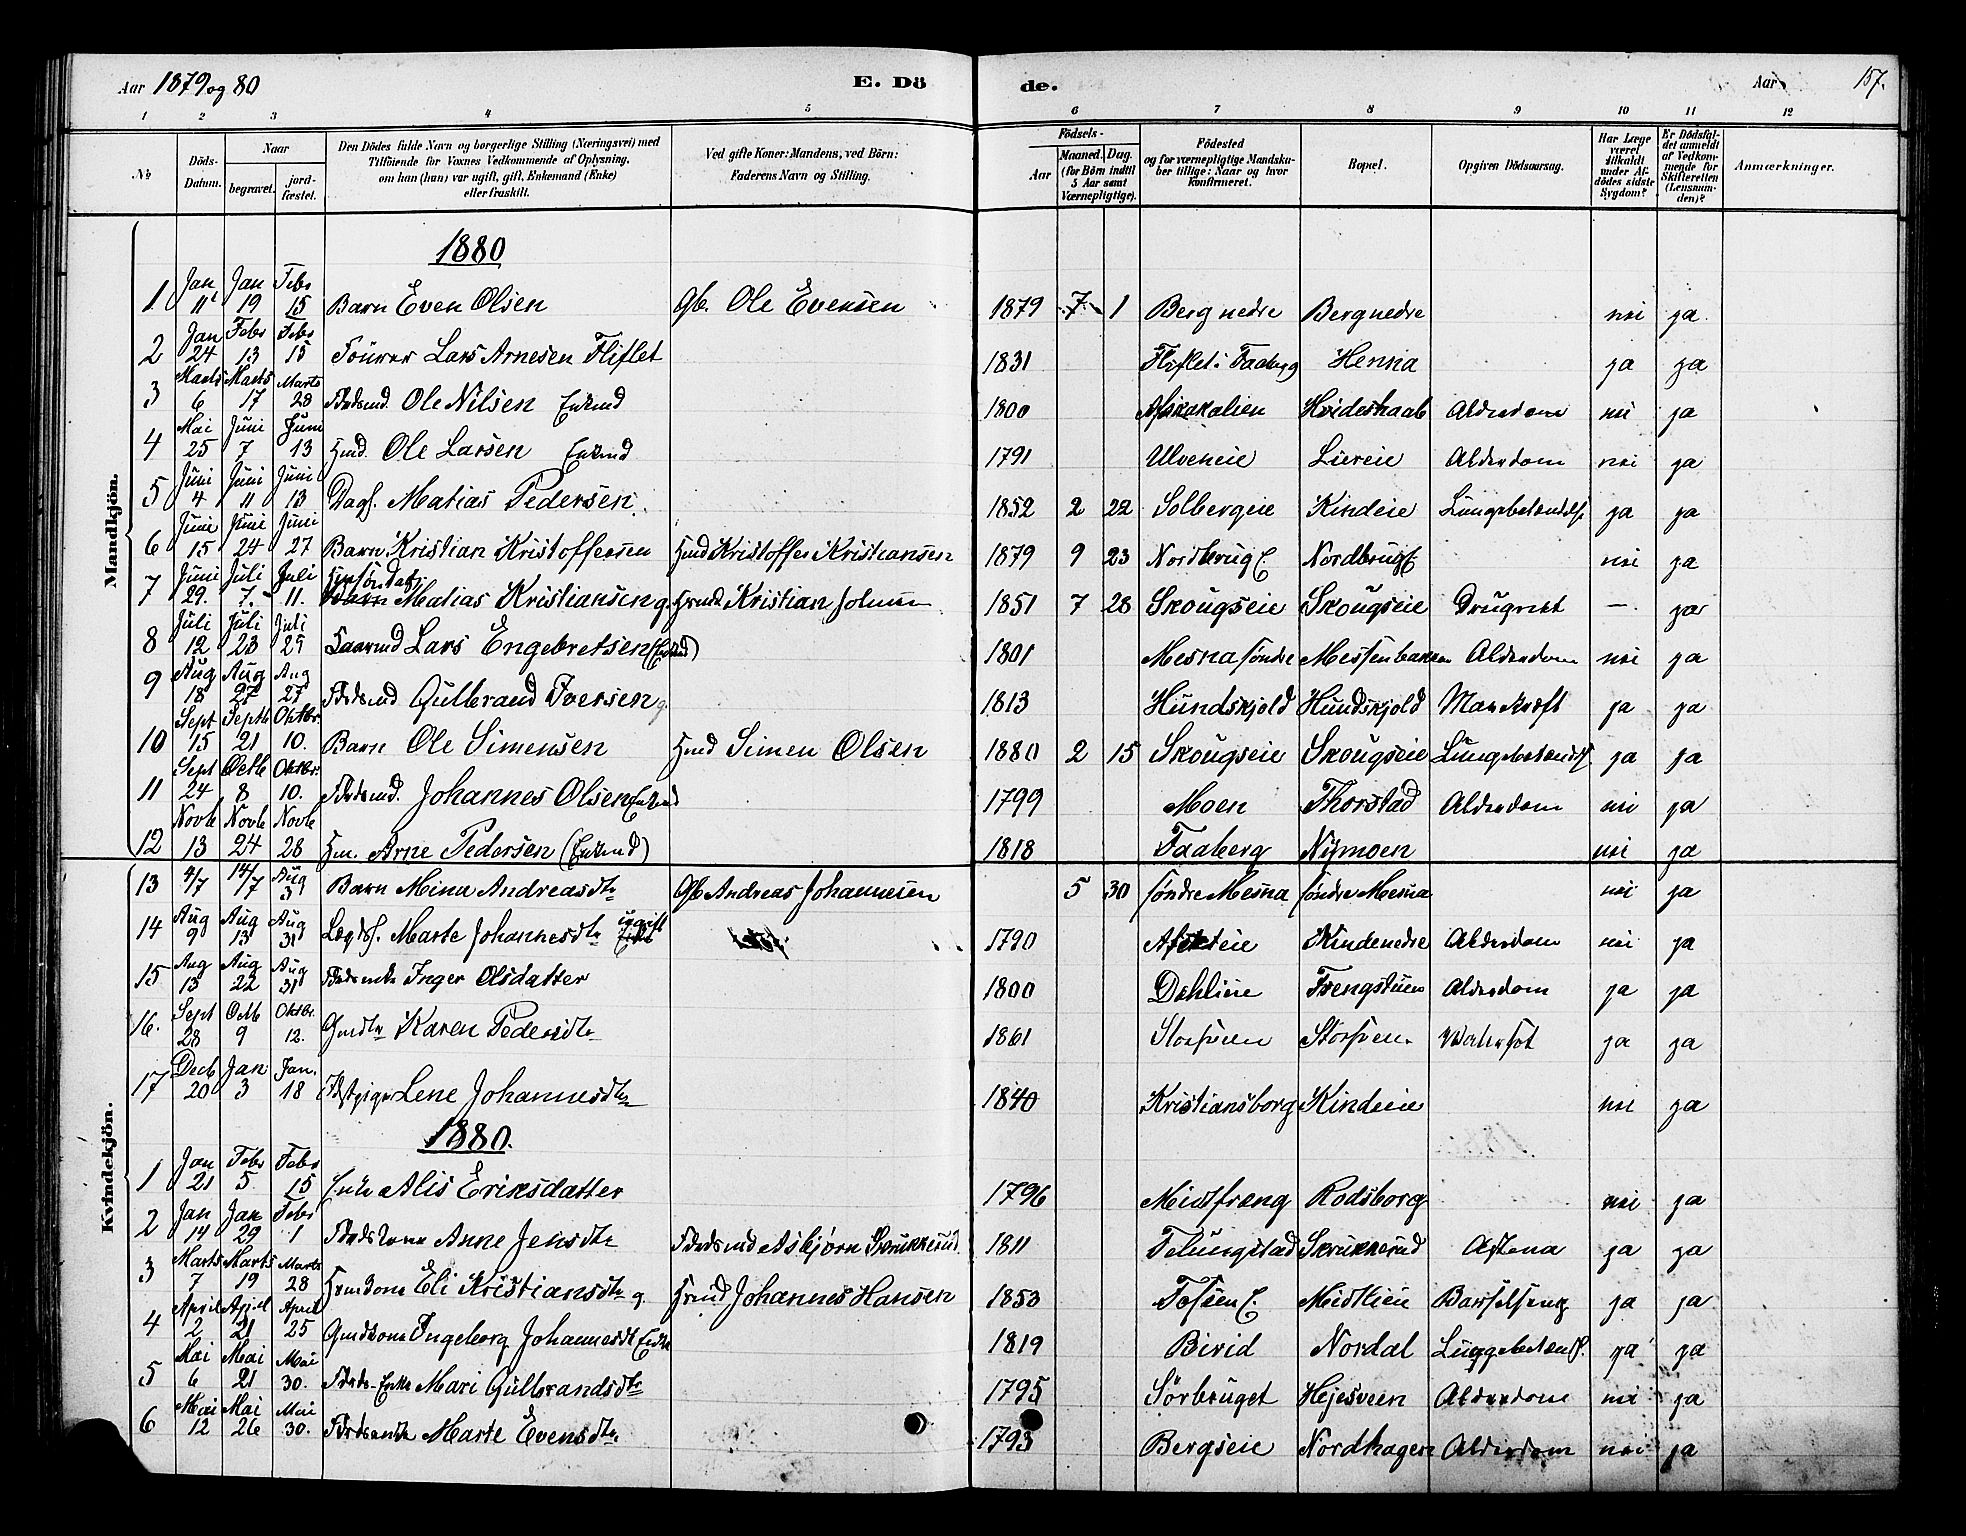 Aar 1879 og 80 E. Dö de. Aar 157.
1 2 3 4 5 6 7 8 9 10 11 12
№ Döds-Datum. Naar begravet. jord-fæstet. Den Dödes fulde Navn og borgerlige Stilling (Næringsvei) med Tilföiende for Voxnes Vedkommende af Oplysning, om han (hun) var ugift, gift, Enkemand (Enke) eller fraskilt. Ved gifte Koner: Mandens, ved Börn: Faderens Navn og Stilling. Födsels- Aar Maaned. Dag. (for Börn indtil 5 Aar samt Værnepligtige). Födested og for værnepligtige Mandskaber tillige: Naar og hvor konfirmeret. Bopæl. Opgiven Dödsaarsag. Har Læge været tilkaldt under Afdödes sidste Sygdom? Er Dödsfaldet anmeldt af Vedkommende for Skifteretten (Lensmanden)? Anmærkninger.
Mandkjön.
1880
1 Jan 11 Jan 19 Febr 15 Barn Even Olsen Gb. Ole Evensen 1879 7 1 Berg nedre Berg nedre nei ja
2 Jan 24 Febr 13 Febr 15 Lars Arnesen Fliflet 1831 Fliflet i Faaberg Henna ja ja
3 Marts 6 Marts 17 Marts 28 Ole Nilsen Enkmd 1800 Alderdom nei ja
4 Mai 25 Juni 7 Juni 13 Hmd. Ole Larsen Enkmd 1791 Ulveneie Liereie Alderdom nei ja
5 Juni 4 Juni 11 Juni 13 Dagl. Matias Pedersen 1852 2 22 Solbergeie Kindeie Lungebetændels. ja ja
6 Juni 15 Juni 24 Juni 27 Barn Kristian Kristoffersen Hmd Kristoffer Kristiansen 1879 9 23 Nordbrug E. Nordbrug E. nei ja
7 Juni 29. Juli 7. Juli 11. Matias Kristiansen g. Kristian Johnsen 1851 7 28 Skougseie Skougseie Druknet — ja
8 Juli 12 Juli 23 Juli 29 Gaarmd Lars Engebretsen (Enkmd) 1801 Mesna söndre Messenbakken Alderdom nei ja
9 Aug 18 Aug 27 Aug 27 Gulbrand Iversen g 1813 Hundskjold Hundskjold Mavekræft ja ja
10 Sept 15 Septb 21 Oktbr. 10. Barn Ole Simensen Hmd Simen Olsen 1880 2 15 Skougseie Skougseie Lungebetændelse ja ja
11 Sept 24 Octb 8 Oktbr. 10. Johannes Olsen Enkmd 1799 Moen Thorstad Alderdom nei ja
12 Novb 13 Novb 24 Novb 28 Hm. Arne Pedersen (Enkmd) 1818 Faaberg Nymoen nei ja
Kvindekjön.
13 4/7 14/7 Aug 3 Barn Mina Andreasdtr Gb Andreas Johannesen 5 30 söndre Mesna söndre Mesna nei ja
14 Aug 9 Aug 13 Aug 31 Lægdsl. Marte Johannesdtr ugift 1790 Kindenedre Alderdom nei ja
15 Aug 13 Aug 22 Aug 31 Inger Olsdatter 1800 Dahlieie Alderdom ja ja
16. Sept 28 Octb 9 Oktbr. 12. Gmdtr Karen Pedersdtr 1861 Storsveen Storsveen Vatersot ja ja
17 Decb 20 Jan 3 Jan. 18 Lene Johannesdtr 1840 Kristiansborg Kindeie nei ja
1880.
1 Jan 21 Febr 5 Febr 15 Enke Alis Eriksdatter 1796 Rodsborg nei ja
2 Jan 14 Jan 29 Febr 1 Anne Jensdtr Asbjörn Skrukkerud 1811 Skrukkerud Astma ja ja
3 Marts 7 Marts 19 Marts 28 Hmdkone Eli Kristiansdtr g. Hmd Johannes Hansen 1853 Midtlien Barselseng ja ja
4 April 2 April 21 April 25 Gmdkone Ingeborg Johannesdt Enke 1819 Birid Nordal Lungebetændels. ja ja
5 Mai 6 Mai 21 Mai 30. Mari Gulbrandsdtr 1795 Sörbruget Hejesveen Alderdom nei ja
6 Mai 12 Mai 26 Mai 30. Marte Evensdtr. 1793 Bergseie Nordhagen Alderdom nei ja